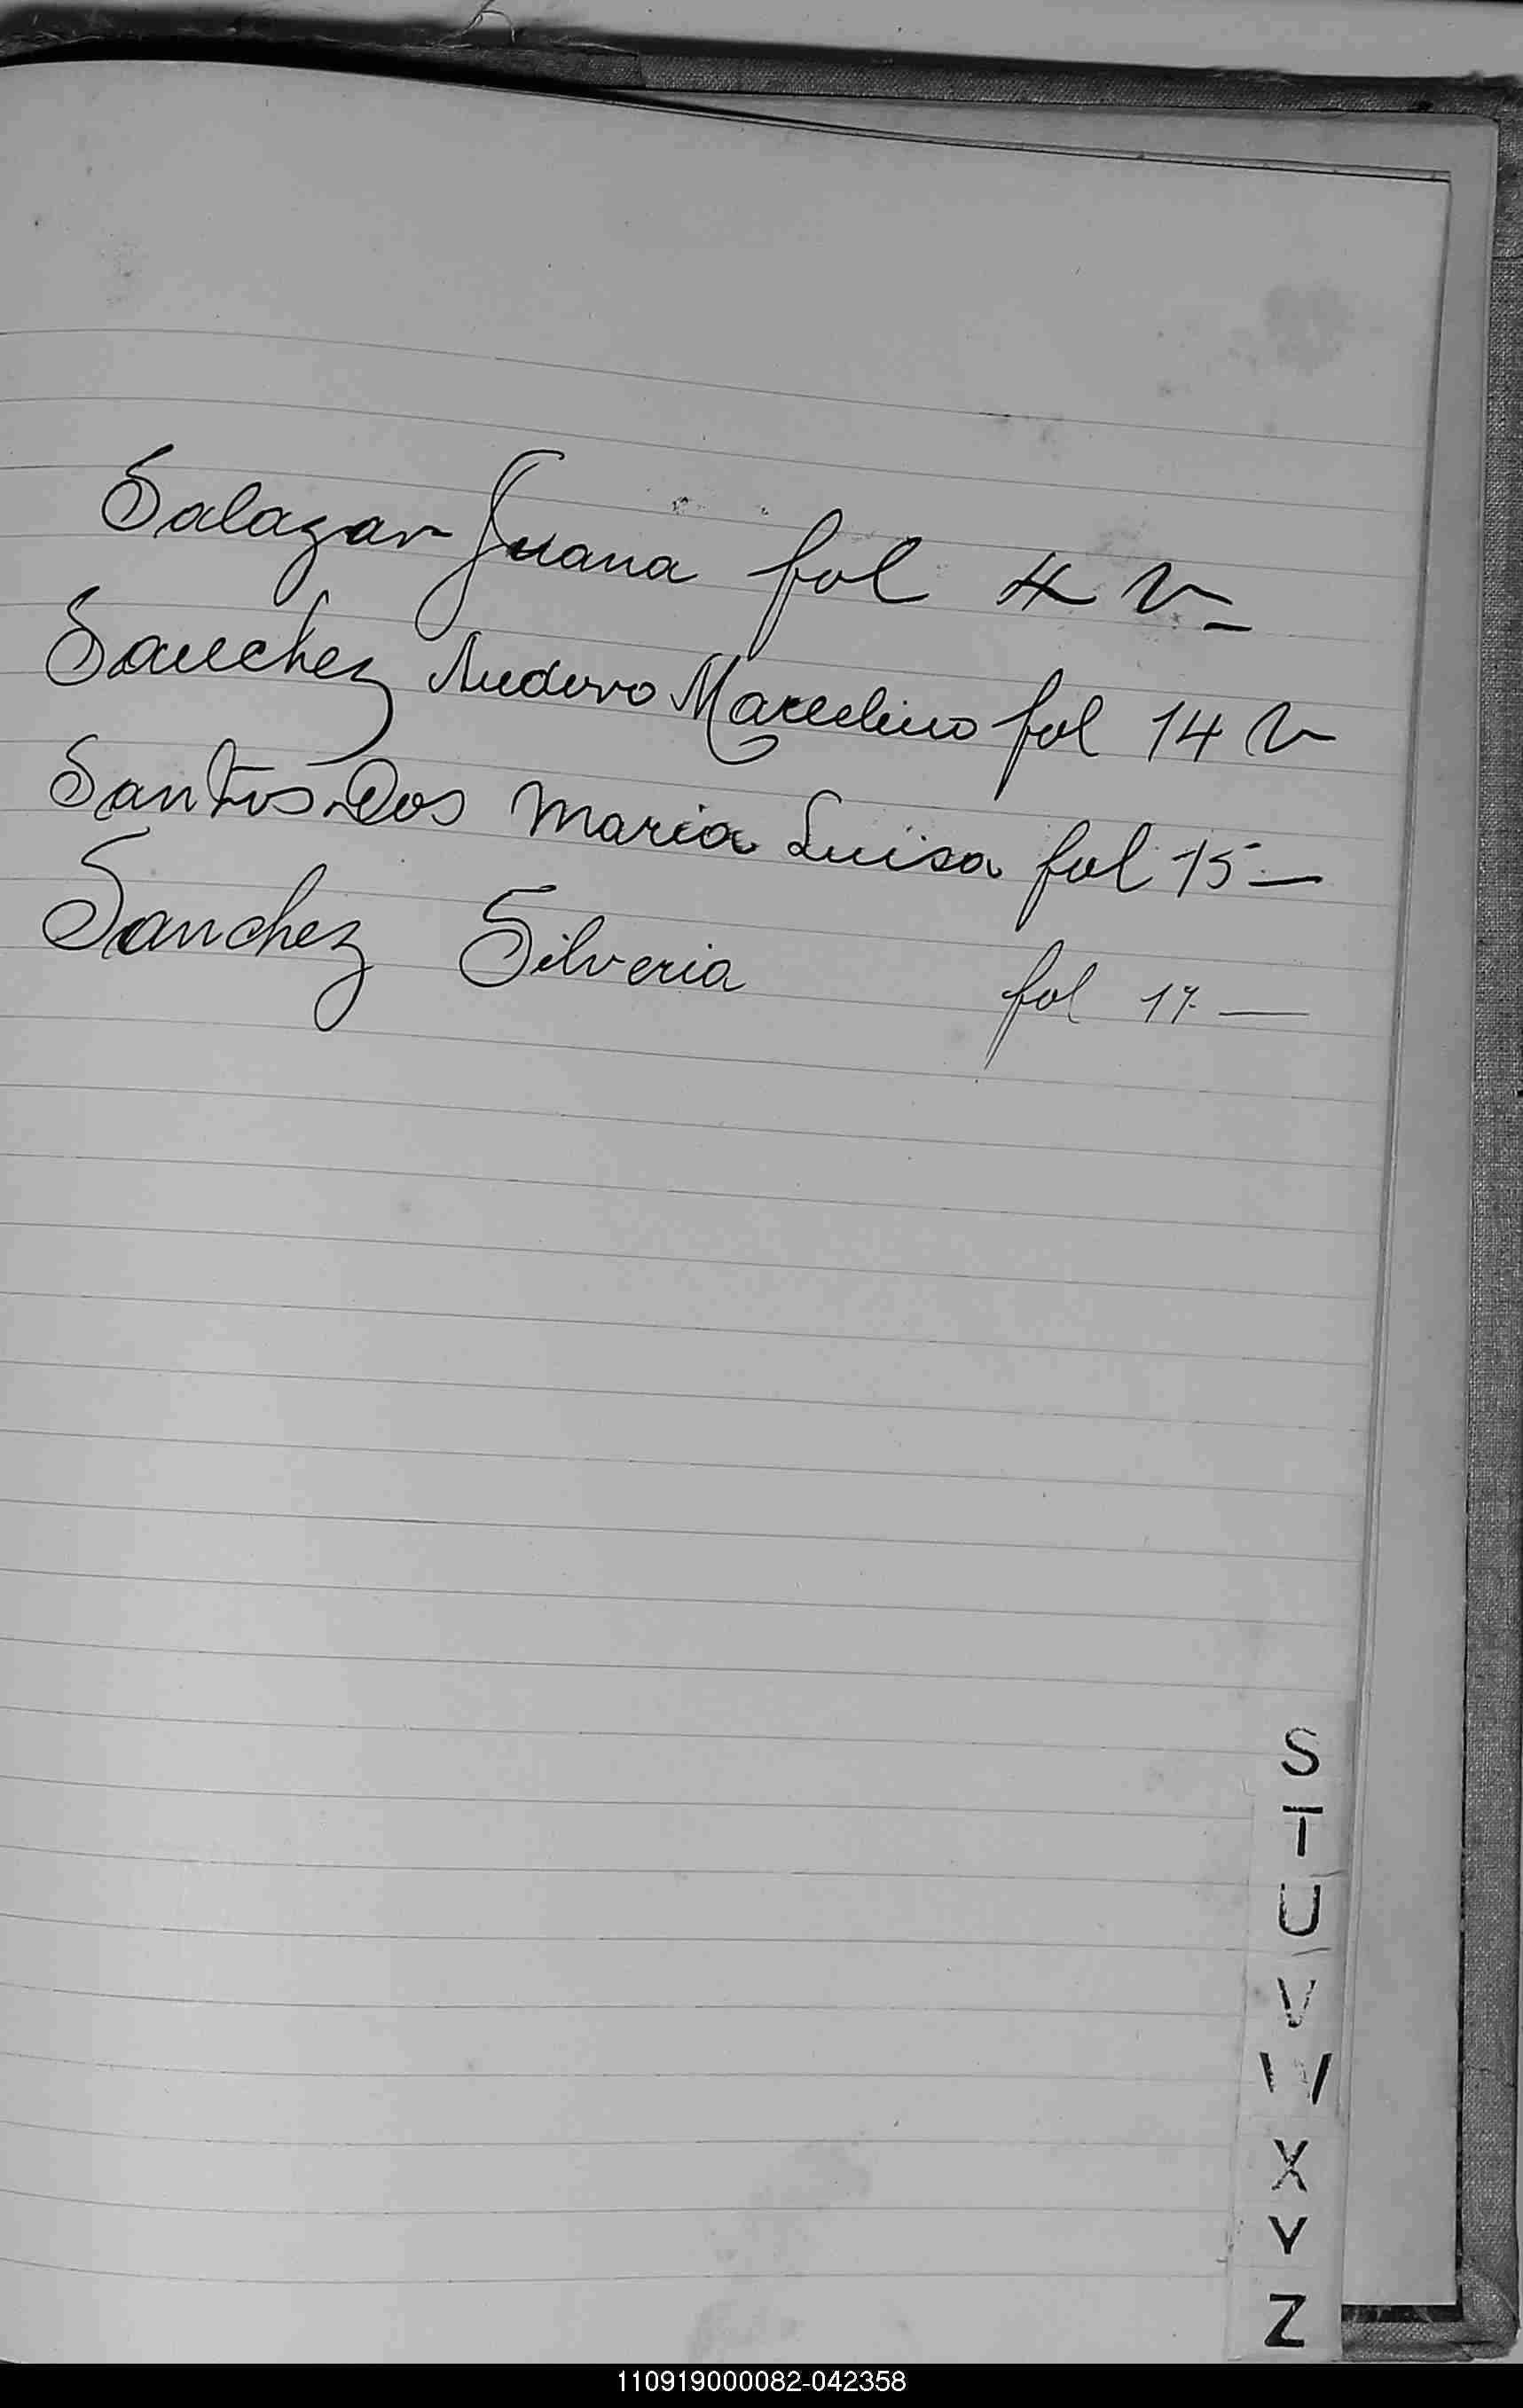 Salazar Juana fol 4 V_
Sanchez Marcelino fol 14 V
Santos Dos Maria Luisa fol 15 —
Sanchez Silveria fol 17 —
S
T
U
V
W
X
Y
Z
110919000082-042358